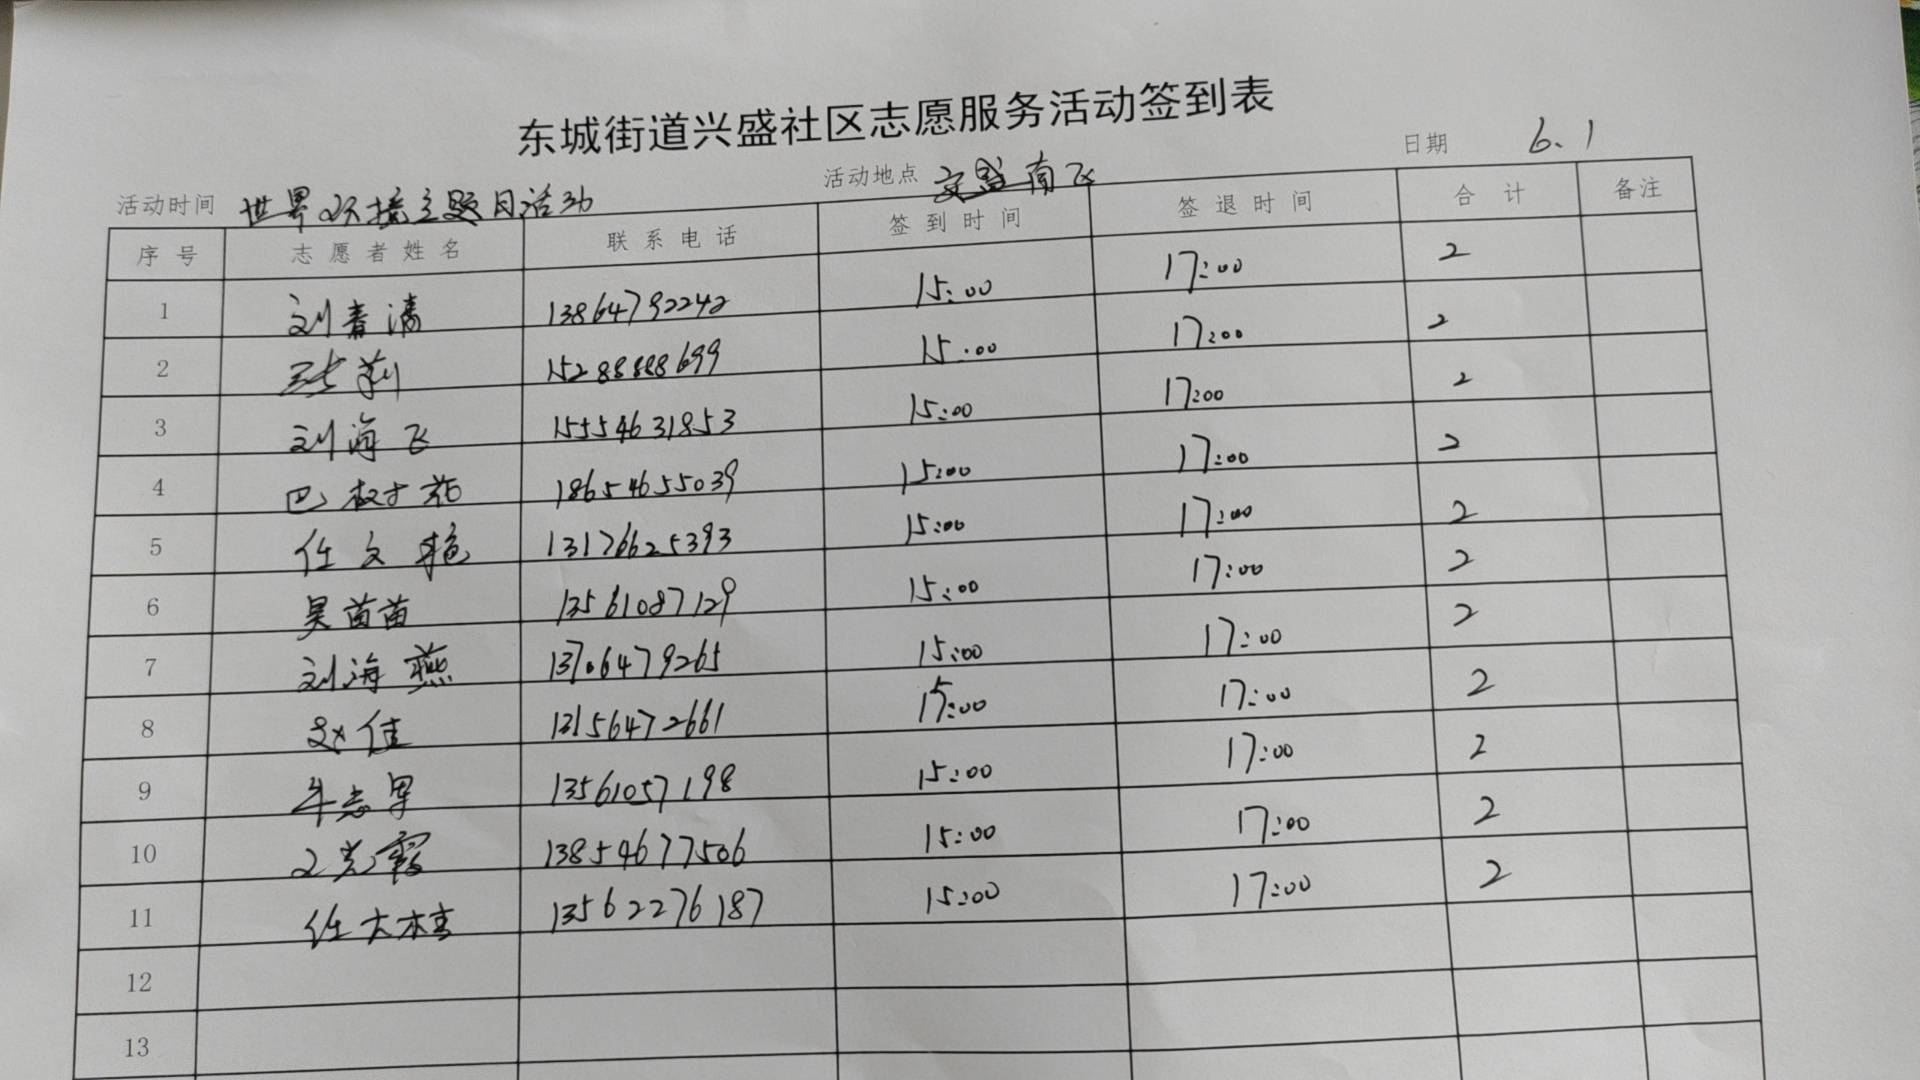 东城街道兴盛社区志愿服务活动签到表
活动时间 世界 主题日活动 活动地点 南 日期 6.1
序号 志愿者姓名 联系电话 签到时间 签退时间 合计 备注
1 刘春涛 13864792242 15:00 17:00 2
2 莉 15288888699 15:00 17:00 2
3 刘海飞 15554631853 15:00 17:00 2
4 巴树花 18654655039 15:00 17:00 2
5 任文艳 13176625393 15:00 17:00 2
6 吴苗苗 13561087129 15:00 17:00 2
7 刘海燕 13706479265 15:00 17:00 2
8 赵佳 13156472661 15:00 17:00 2
9 牛志军 13561057198 15:00 17:00 2
10 霞 13854677506 15:00 17:00 2
11 任大 13562276187 15:00 17:00 2
12
13